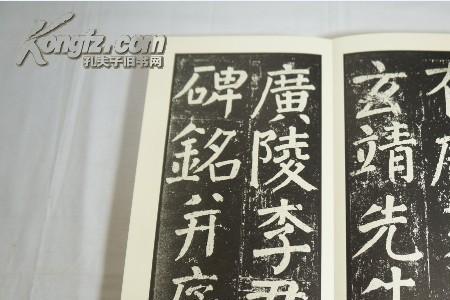 Kongfz.com
孔夫子旧书网
玄靖先生
廣陵李君
碑銘并序